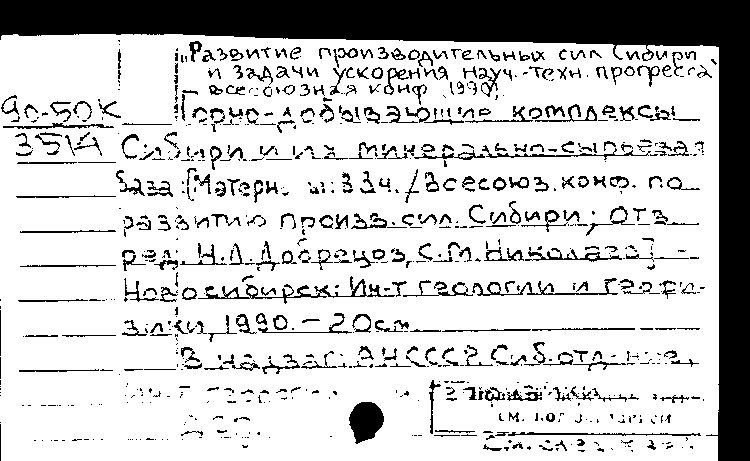 „Развитие производительных сил Сибири
и задачи ускорения науч.-техн. прогресса"
всесоюзная конф (1990)
90-50К Горно-добывающие комплексы
3514 Сибири и их минерально-сырьевая
база: [Матери ы: в 3 ч. / Всесоюз. конф. по
развитию произв. сил. Сибири; Отв
ред. Н.Л. Добрецов, С.М. Николаев] -
Новосибирск: Ин-т геологии и геофи-
зики, 1990. - 20см.
В надзаг: АН СССР. Сиб. отд-ние,
Ин-т геологии и
см.